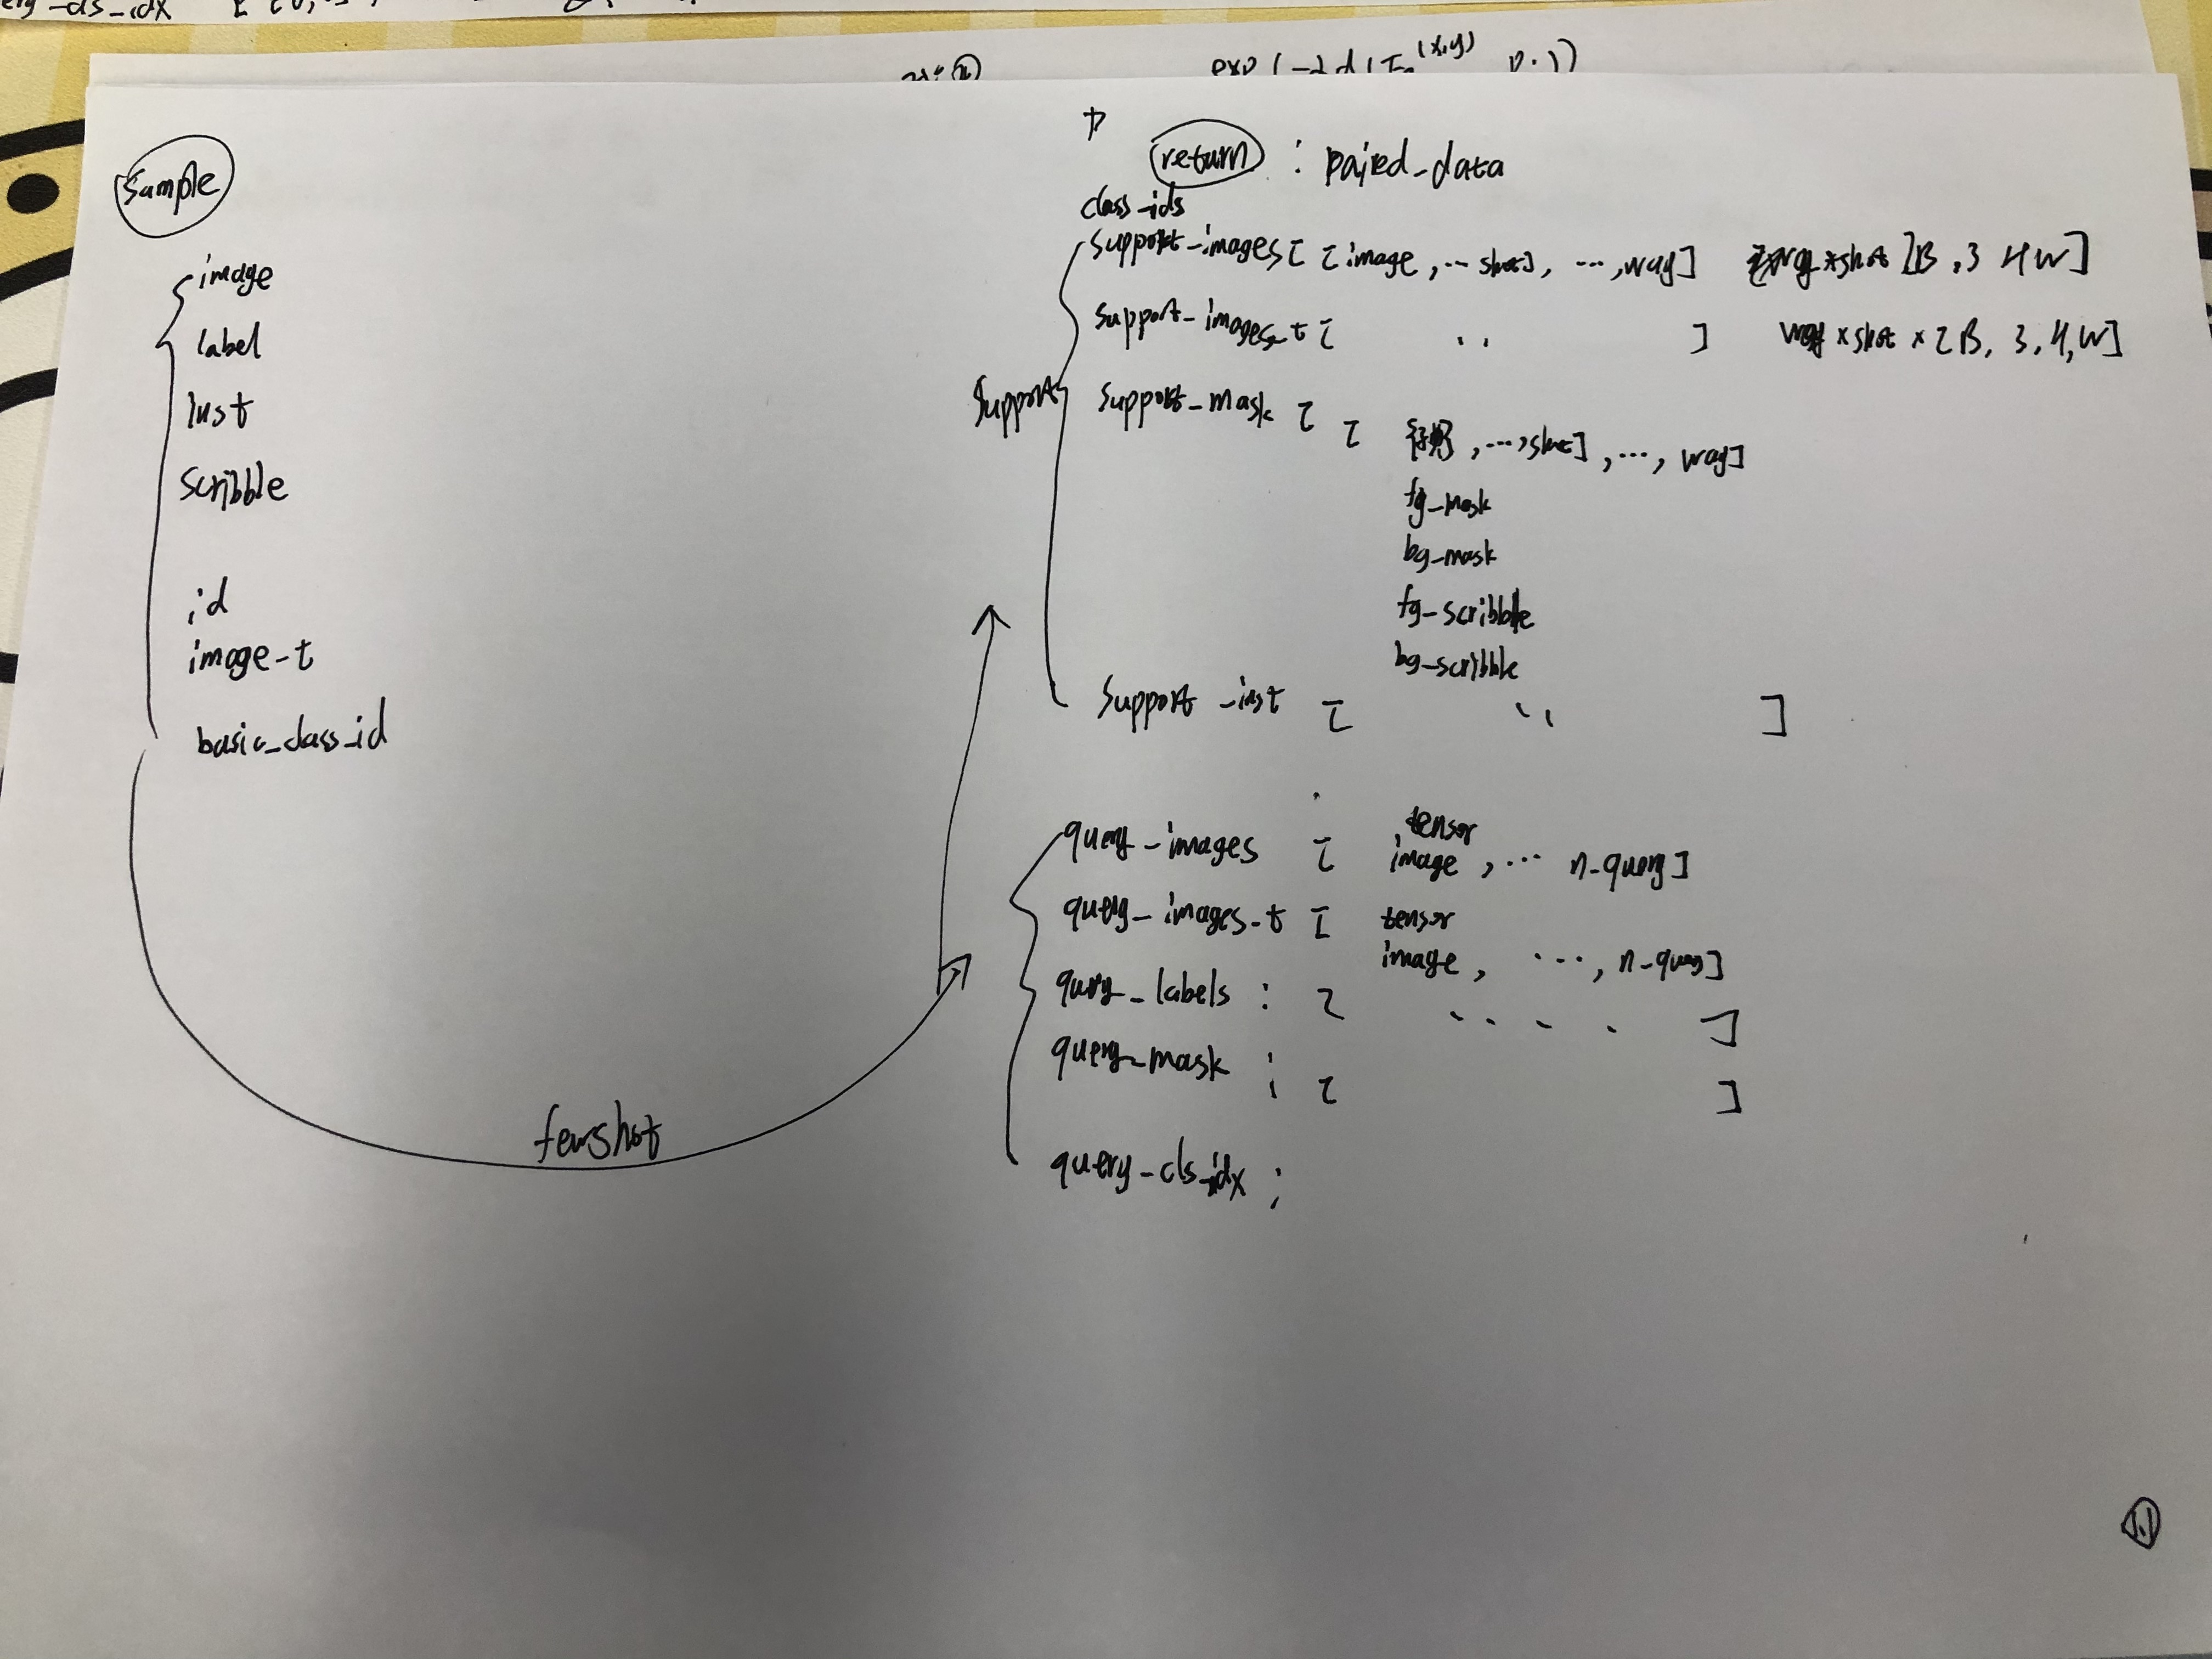 exp(-αd(
(x,y)
sample
image
label
inst
scribble
id
image-t
basic_class_id
fewshot
return : paired_data
class_ids
support
support-images [ [ image , ... shot] , ... , way] way*shot [B , 3 H W]
support-images_t [ ' ' ] way x shot x [B, 3, H, W]
support_mask [ [ , ..., shot] , ..., way]
fg_mask
bg_mask
fg_scribble
bg_scribble
support_inst [ ' ' ]
query_images [ tensor
image , ... n_query]
query_images_t [ tensor
image , ..., n_query]
query_labels : [ . . . . ]
query_mask : [ ]
query_cls_idx :